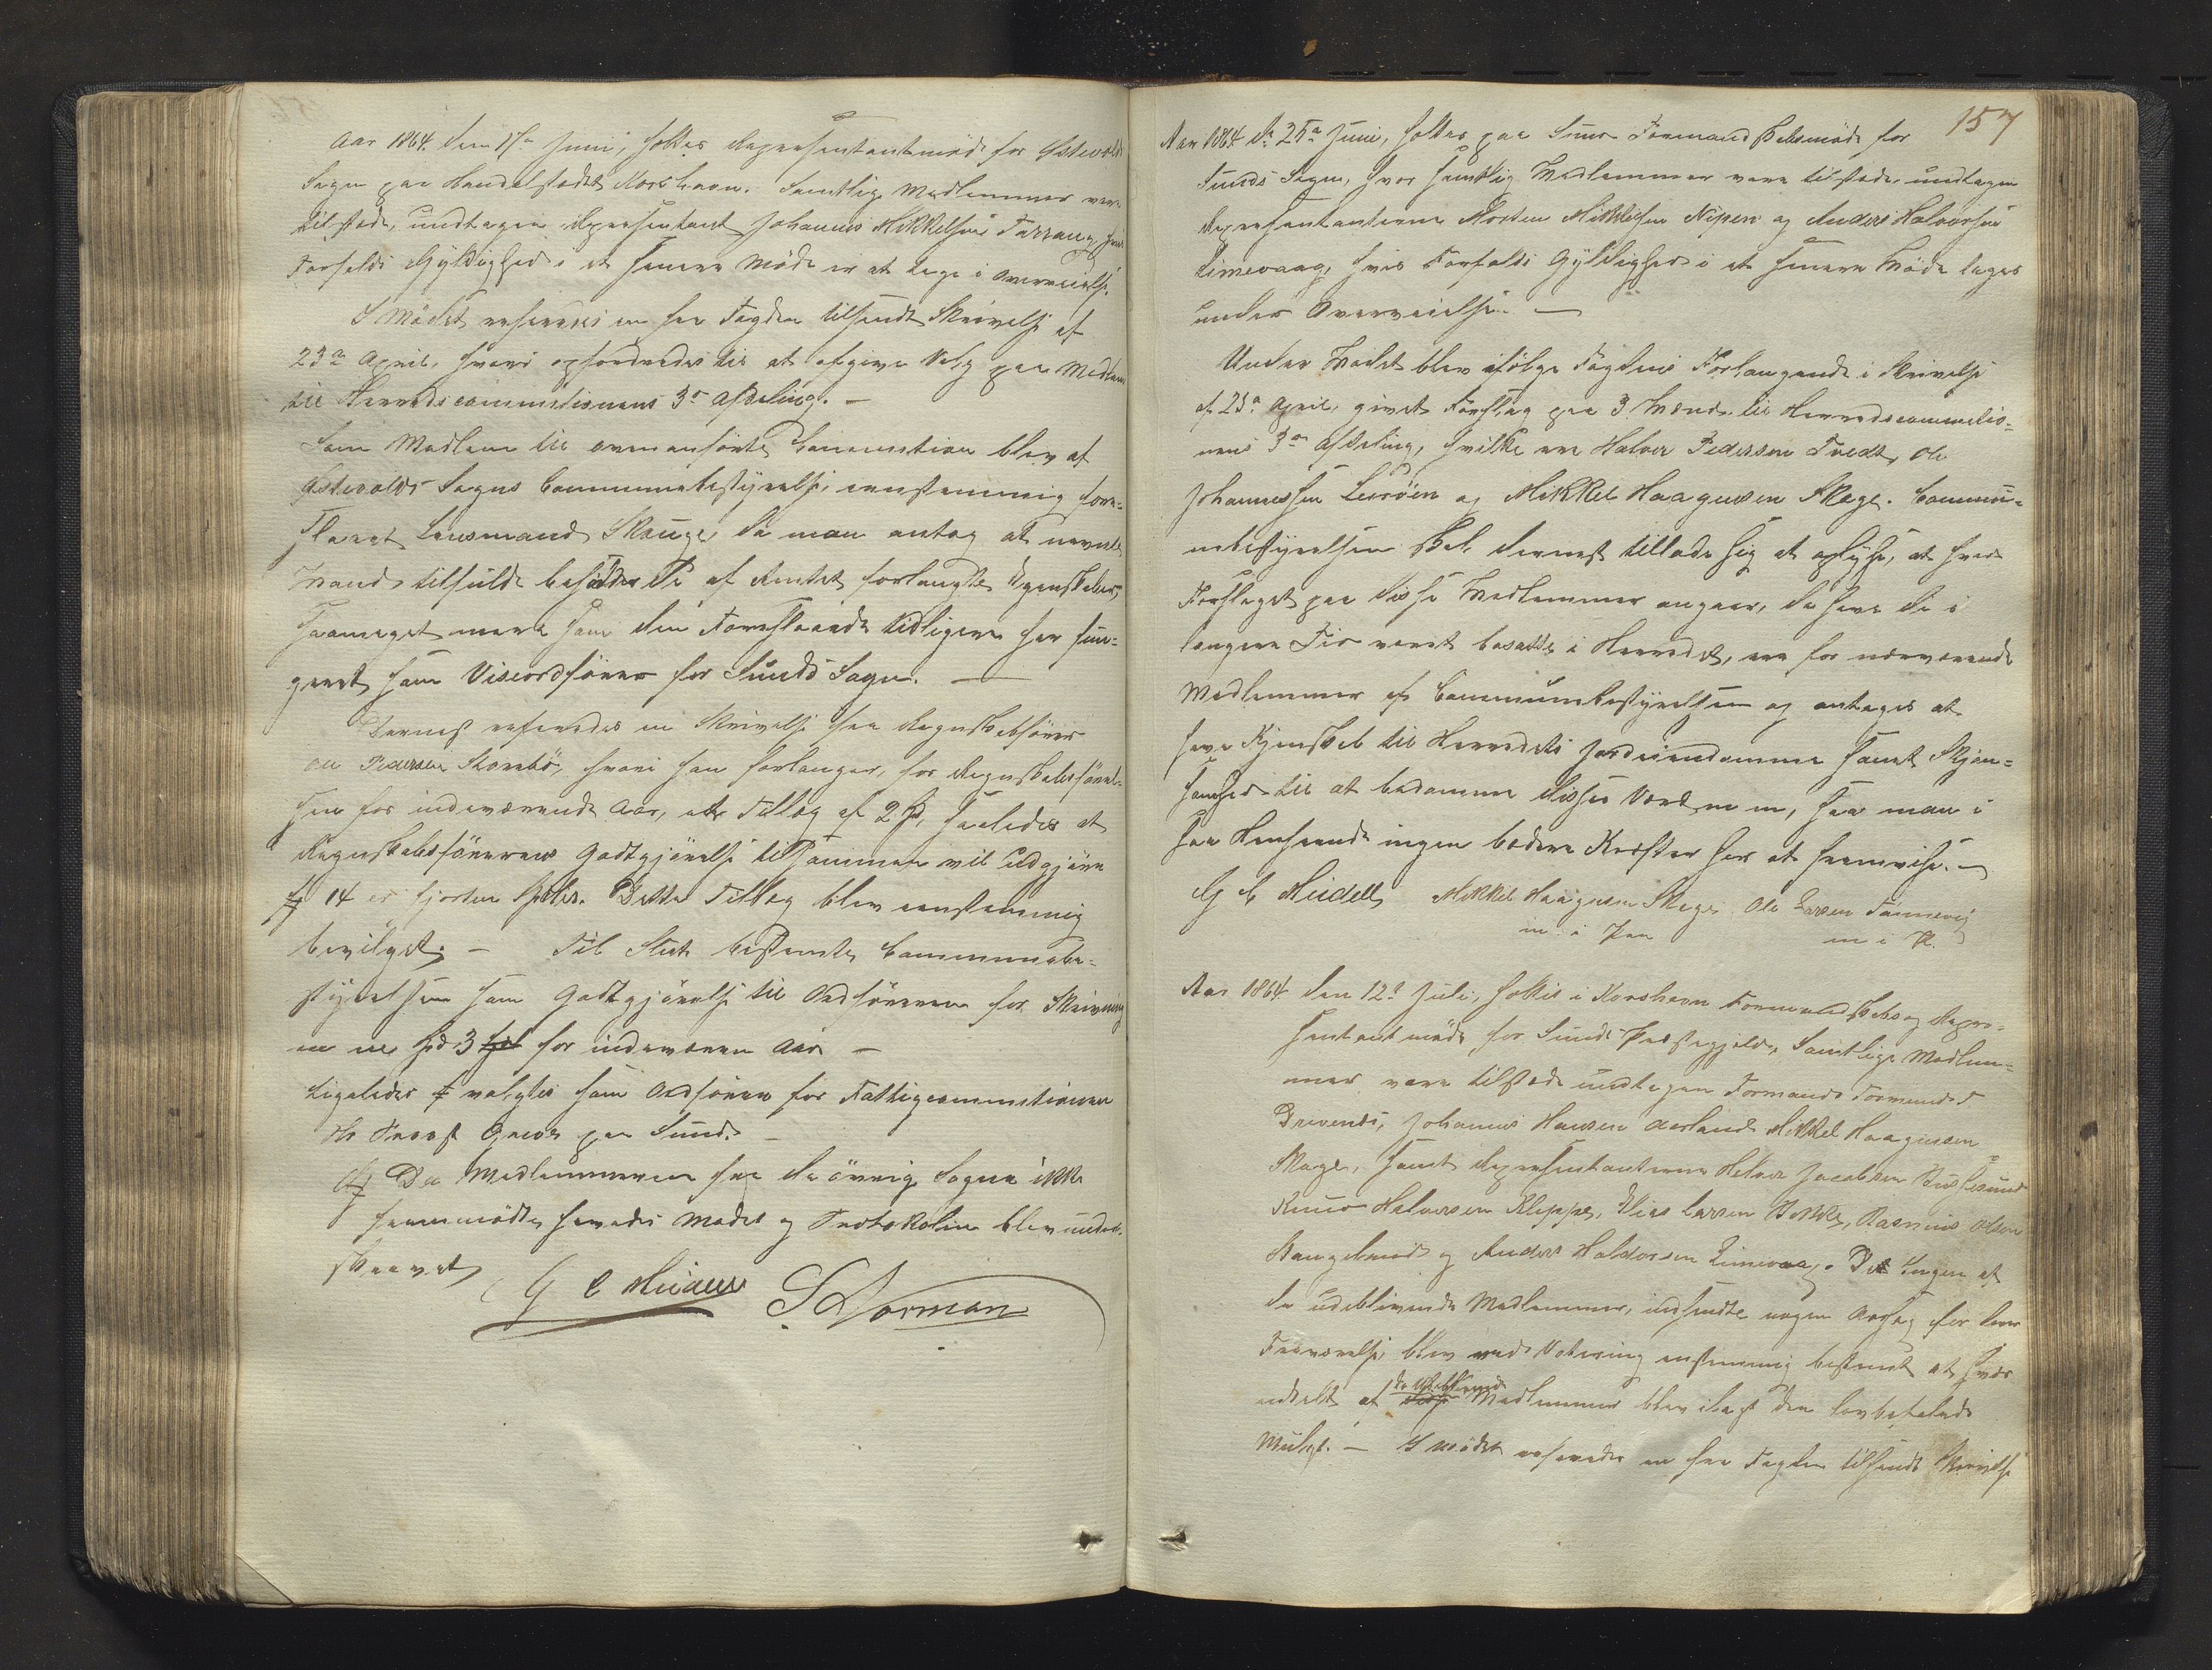 Aar 1864 den 17de Juni, holdtes Representantmøde for Østevolds
Sogn paa Handelstædet Korshavn. Samtlig Medlemmer vare
tilstæde, undtagen Representant Johannes Mikkelsen Tarrang, hvis
Forfalds Gyldighed i et senere Møde er at tage i Overveielse.
I Mødet refereres en fra Fogden tilsendt Skrivelse af
23de April, hvori opfordredes til at afgive Valg paa Medlem
til Herredscommitionens 3die Afdeling. –
Som Medlem til ovenanførte Commition blev af
Østevolds Sogns Communebestyrelse eenstemmig fore-
slaaet Lensmand Skauge, da man antog at nævnte
Mand tilfulde besidder de af Amtet forlangte Egenskaber,
saameget mere som den Foreslaaede tidligere har fun-
geret som Viseordfører for Sunds Sogn. –
Dernest refereredes en Skrivelse fra Regnskabsfører
Ole Pedersen Storebø, hvori han forlanger, for Regnskabsførel-
sen for indeværende Aar, et Tillæg af 2 Spd, saaledes at
Regnskabsførerens Godtgjørelse tilsammen vil Udgjøre
14 er fjorten Spdlr. Dette Tillæg blev eenstemmig
bevilget. – Til Slut bestemte Communebe-
styrelsen som Godtgjørelse til Ordføreren for Skrivning
m m Spd 3 for indeværen Aar –
Ligeledes valgtes som Ordfører for Fattigcommitionen
Hr Provst Greve paa Sund. –
Da Medlemmerne fra de øvrig Sogne ikke
fremmødte hævedes Mødet og Protokolen blev under-
skrevet
G C Müdell S. Norman
157
Aar 1864 d. 25de Juni, holdtes paa Sund Formandskabsmøde for
Sunds Sogn, hvor samtlig Medlemmer vare tilstæde, undtagen
Representanterne Morten Mikkelsen Nipen og Anders Haldorsen
Limevaag, hvis Forfalds Gyldighed i et senere Møde tages
under Overveielse. –
Under Mødet blev ifølge Fogdens Forlangende i Skrivelse
af 23de April, givet Forslag paa 3 Mænd til Herredscommitio-
nens 3die Afdeling, hvilke ere Halvor Pedersen Tvedt, Ole
Johannessen Lerøen og Mikkel Haagensen Skage. Commu-
nebestyrelsen skal dernest tillade sig at oplyse, at hvad
Forslaget paa disse Medlemmer angaar, da have de i
længere Tid været bosatte i Herredet, ere for nærværende
Medlemmer af Communebestyrelsen og antages at
have Kjendskab til Herredets Jordeiendomme samt Skjøn-
somhed til at bedømme disses Værd m m, saa man i
saa Henseende ingen bedere Kræfter har at fremvise. –
G C Müdell Mikkel Haagensen Skage Ole Larsen Tømmevig
m i Pen m i P.
Aar 1864 den 12te Juli, holdtes i Korshavn Formandskabs og Repre-
sentantmøde for Sunds Præstegjeld, Samtlige Medlem-
mer vare tilstæde undtagen Formand
Johannes Hansen Mikkel Haagensen
Skage, samt Representanterne Helvor Jacobsen Buklesund
Knud Halvorsen Kleppe, Elias Larsen, Rasmus Olsen
Stangeland og Anders Haldorsen Limevaag. Da Ingen af
de udeblivende Medlemmer, indsendte nogen Aarsag for deres
Fraværelse, blev ved Votering enstemmig bestemt at hver
enkelt af de udeblivende Medlemmer blev ilagt den lovbefalede
Mulgt. – I mødet refereredes en fra Fogden tilsendt Skrivelse